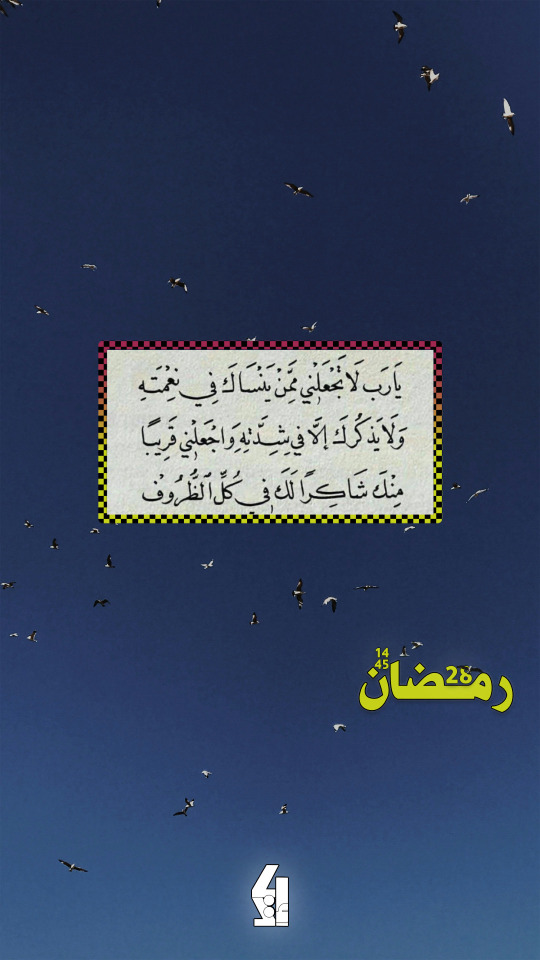 يَارَب لَا تَجْعَلْنِي مِمَّنْ يَنْسَاكَ فِي نِعْمَتِهِ
وَلَا يَذكُرَكَ إلَّا فِي شِدَّتِهِ وَاجْعَلْنِي قَرِيبًا
مِنْكَ شَاكِرًا لَكَ فِي كُلِّ الظُّرُوفْ
28 رمضان
14
45